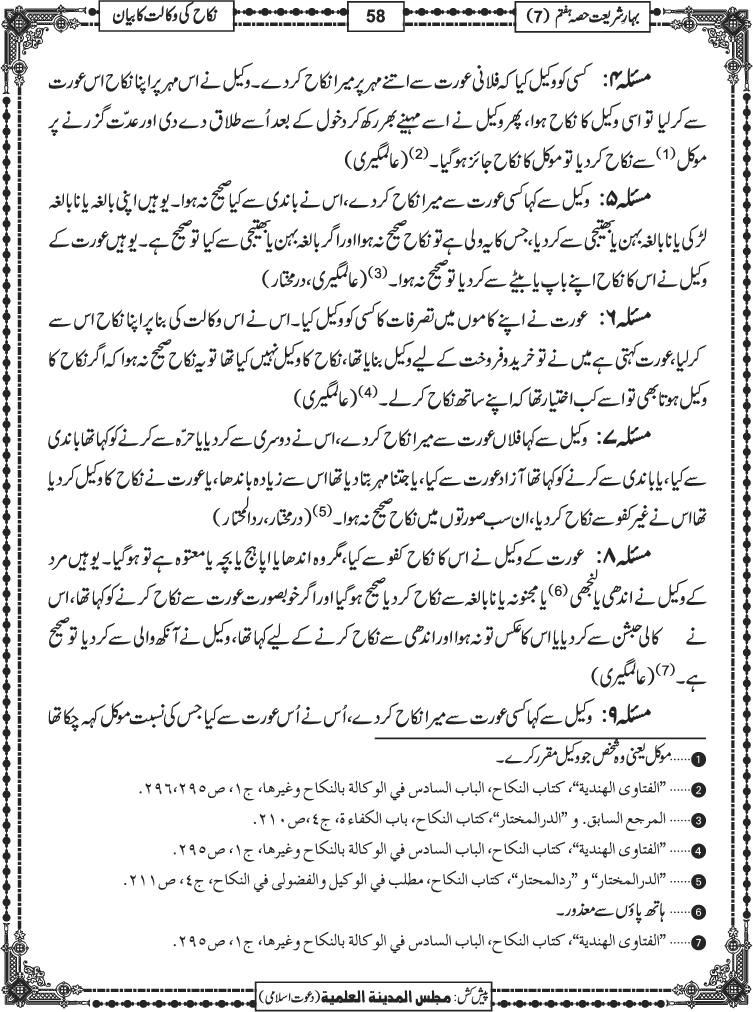 بہارِ شریعت حصہ ہفتم (7)
58
نکاح کی وکالت کا بیان
مسئلہ ۴: کسی کو وکیل کیا کہ فلانی عورت سے اتنے مہر پر میرا نکاح کر دے۔ وکیل نے اس مہر پر اپنا نکاح اس عورت
سے کر لیا تو اسی وکیل کا نکاح ہوا، پھر وکیل نے اسے مہینے بھر رکھ کر دخول کے بعد اُسے طلاق دے دی اور عدّت گزرنے پر
موکل(1) سے نکاح کر دیا تو موکل کا نکاح جائز ہوگیا۔(2) (عالمگیری)
مسئلہ ۵: وکیل سے کہا کسی عورت سے میرا نکاح کر دے، اس نے باندی سے کیا صحیح نہ ہوا۔ یوہیں اپنی بالغہ یا نابالغہ
لڑکی یا نابالغہ بہن یا بھتیجی سے کر دیا، جس کا یہ ولی ہے تو نکاح صحیح نہ ہوا اور اگر بالغہ بہن یا بھتیجی سے کیا تو صحیح ہے۔ یوہیں عورت کے
وکیل نے اس کا نکاح اپنے باپ یا بیٹے سے کر دیا تو صحیح نہ ہوا۔(3) (عالمگیری، درمختار)
مسئلہ ۶: عورت نے اپنے کاموں میں تصرفات کا کسی کو وکیل کیا۔ اس نے اس وکالت کی بنا پر اپنا نکاح اس سے
کر لیا، عورت کہتی ہے میں نے تو خرید و فروخت کے لیے وکیل بنایا تھا، نکاح کا وکیل نہیں کیا تھا تو یہ نکاح صحیح نہ ہوا کہ اگر نکاح کا
وکیل ہوتا بھی تو اسے کب اختیار تھا کہ اپنے ساتھ نکاح کر لے۔(4) (عالمگیری)
مسئلہ ۷: وکیل سے کہا فلاں عورت سے میرا نکاح کر دے، اس نے دوسری سے کر دیا یا حرّہ سے کرنے کو کہا تھا باندی
سے کیا، یا باندی سے کرنے کو کہا تھا آزاد عورت سے کیا، یا جتنا مہر بتا دیا تھا اس سے زیادہ باندھا، یا عورت نے نکاح کا وکیل کر دیا
تھا اس نے غیر کفو سے نکاح کر دیا، ان سب صورتوں میں نکاح صحیح نہ ہوا۔(5) (درمختار، ردالمحتار)
مسئلہ ۸: عورت کے وکیل نے اس کا نکاح کفو سے کیا، مگر وہ اندھا یا اپاہج یا بچہ یا معتوہ ہے تو ہوگیا۔ یوہیں مرد
کے وکیل نے اندھی یا لُنجھی(6) یا مجنونہ یا نابالغہ سے نکاح کر دیا صحیح ہوگیا اور اگر خوبصورت عورت سے نکاح کرنے کو کہا تھا، اس
نے کالی حبشن سے کر دیا یا اس کا عکس تو نہ ہوا اور اندھی سے نکاح کرنے کے لیے کہا تھا، وکیل نے آنکھ والی سے کر دیا تو صحیح
ہے۔(7) (عالمگیری)
مسئلہ ۹: وکیل سے کہا کسی عورت سے میرا نکاح کر دے، اُس نے اُس عورت سے کیا جس کی نسبت موکل کہہ چکا تھا
1 ...... موکل یعنی وہ شخص جو وکیل مقرر کرے۔
2 ...... "الفتاوی الهندية"، کتاب النکاح، الباب السادس في الوکالة بالنکاح وغيرها، ج١، ص٢٩٥،٢٩٦.
3 ...... المرجع السابق. و "الدرالمختار"،کتاب النکاح، باب الکفاءة، ج٤،ص٢١٠.
4 ...... "الفتاوی الهندية"، کتاب النکاح، الباب السادس في الوکالة بالنکاح وغيرها، ج١، ص٢٩٥.
5 ...... "الدرالمختار" و "ردالمحتار"، کتاب النکاح، مطلب في الوکيل والفضولی في النکاح، ج٤، ص٢١١.
6 ...... ہاتھ پاؤں سے معذور۔
7 ...... "الفتاوی الهندية"، کتاب النکاح، الباب السادس في الوکالة بالنکاح وغيرها، ج١، ص٢٩٥.
پیش کش: مجلس المدینة العلمیة (دعوت اسلامی)